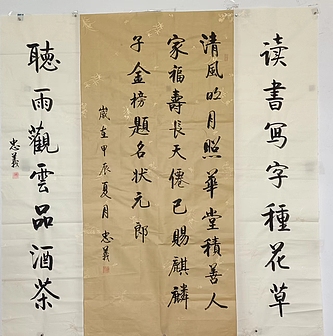 读书写字种花草
清風明月照華堂積善人
家福壽長天僊已賜麒麟
子金榜題名狀元郎
歲在甲辰夏月 忠義
聽雨觀雲品酒茶
忠義